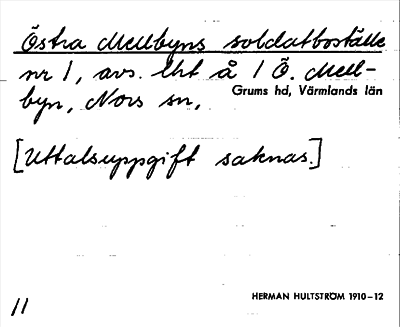 Östra Mellbyns soldatboställe
nr 1, avs. lht å 1 Ö. Mell-
byn, Nors sn,
Grums hd, Värmlands län
[Uttalsuppgift saknas.]
HERMAN HULTSTRÖM 1910-12
11